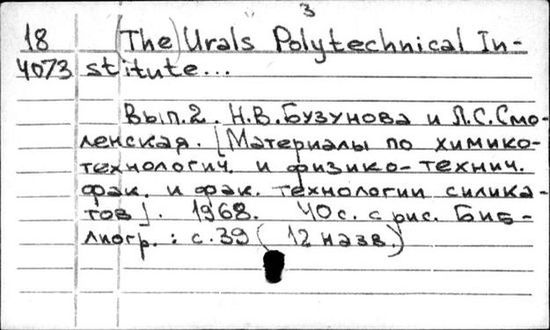 3
18 (The) Urals Polytechnical In-
4073 stitute...
Вып.2. Н.В.Бузунова и Л.С.Смо-
ленская. [Материалы по химико-
технологич. и физико-технич.
фак. и фак. технологии силика-
тов]. 1968. 40с. с рис. Биб-
лиогр.: с.39 (12 назв.)